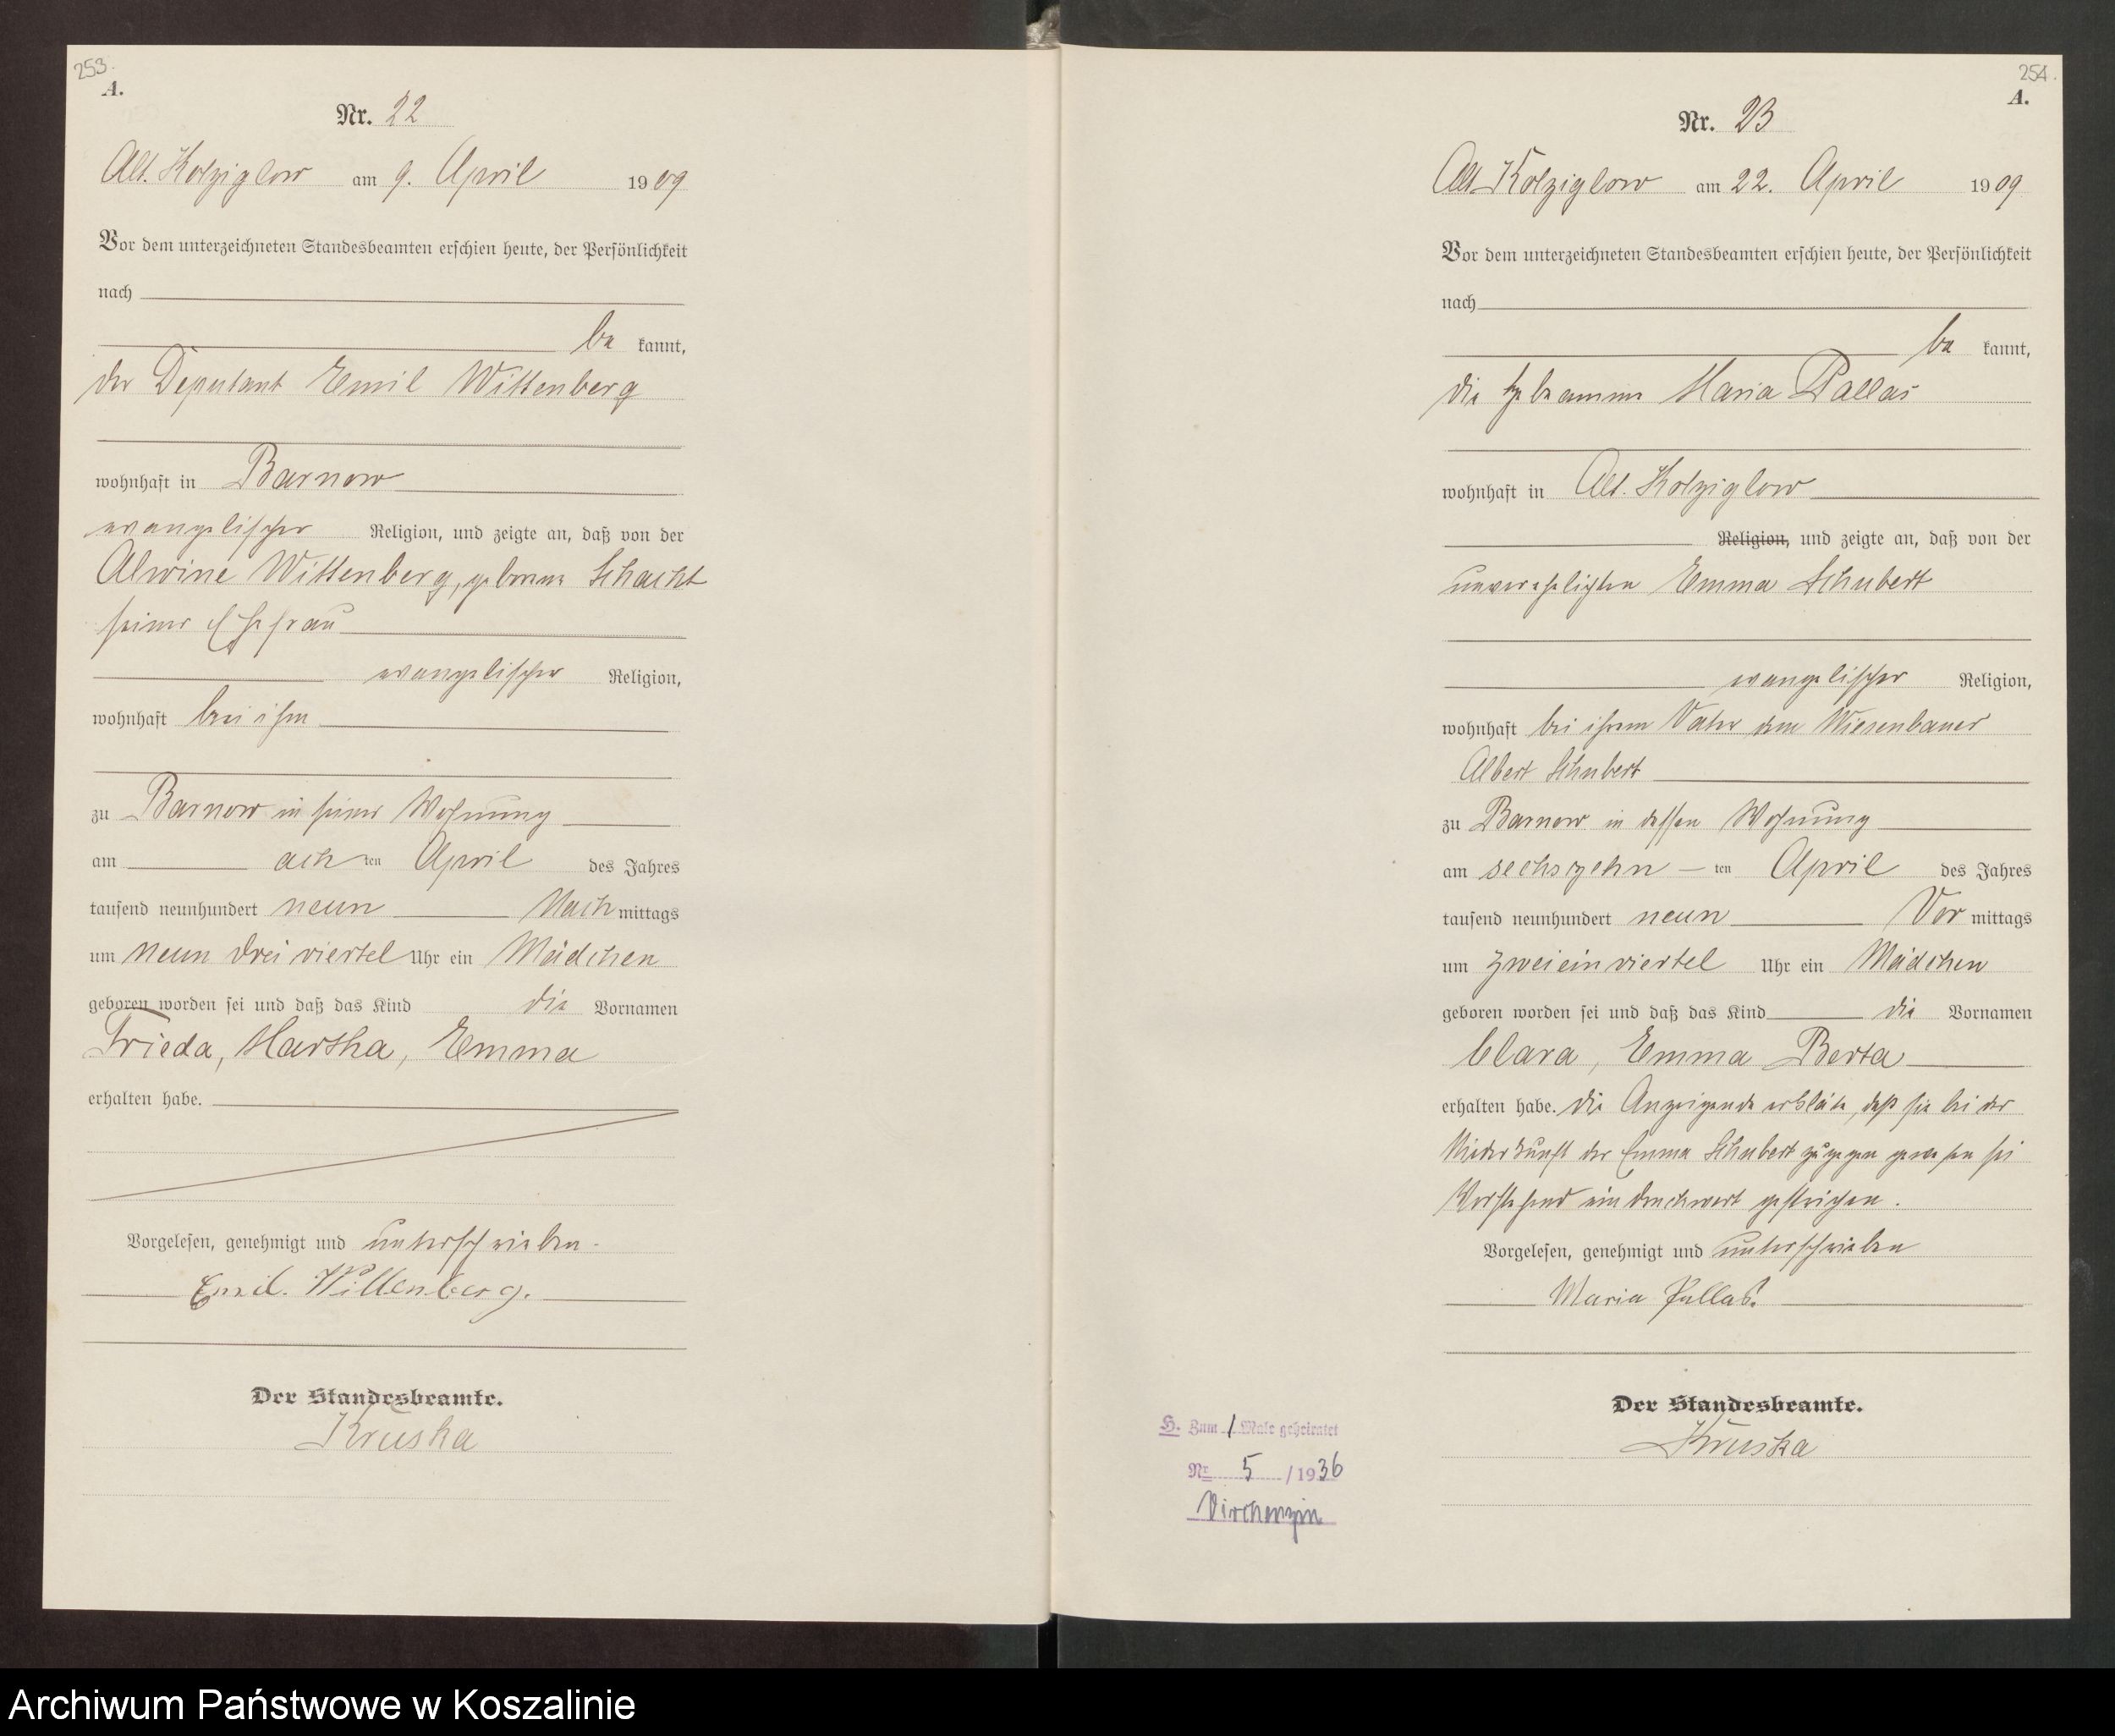 253.
A.
Nr. 22
Alt. Kolziglow am 9. April 1909
Vor dem unterzeichneten Standesbeamten erschien heute, der Persönlichkeit
nach
be kannt,
der Deputant Emil Wittenberg
wohnhaft in Barnow
evangelischer Religion, und zeigte an, daß von der
Alwine Wittenberg, geborene Schacht
seiner Ehefrau
evangelischer Religion,
wohnhaft bei ihm
zu Barnow in seiner Wohnung
am ach ten April des Jahres
tausend neunhundert neun Nach mittags
um neun drei viertel Uhr ein Mädchen
geboren worden sei und daß das Kind die Vornamen
Frieda, Martha, Emma
erhalten habe.
Vorgelesen, genehmigt und unterschrieben.
Emil. Wittenberg.
Der Standesbeamte.
Kruska
254.
A.
Nr. 23
Alt Kolziglow am 22. April 1909
Vor dem unterzeichneten Standesbeamten erschien heute, der Persönlichkeit
nach
be kannt,
die Hebeamme Maria Pallas
wohnhaft in Alt. Kolziglow
Religion, und zeigte an, daß von der
unverehelichten Emma Schubert
evangelischer Religion,
wohnhaft bei ihrem Vater dem Wiesenbauer
Albert Schubert
zu Barnow in dessen Wohnung
am sechszehn ten April des Jahres
tausend neunhundert neun Vor mittags
um zwei ein viertel Uhr ein Mädchen
geboren worden sei und daß das Kind die Vornamen
Clara, Emma Berta
erhalten habe. Die Anzeigende erklärte, daß sie bei der
Niederkunft der Emma Schubert zugegen gewesen sei
Vorstehend ein Druckwort gestrichen.
Vorgelesen, genehmigt und unterschrieben
Maria Pallas.
Der Standesbeamte.
Kruska
H. Zum 1 Male geheiratet
Nr 5 / 1936
Virchenzin
Archiwum Państwowe w Koszalinie